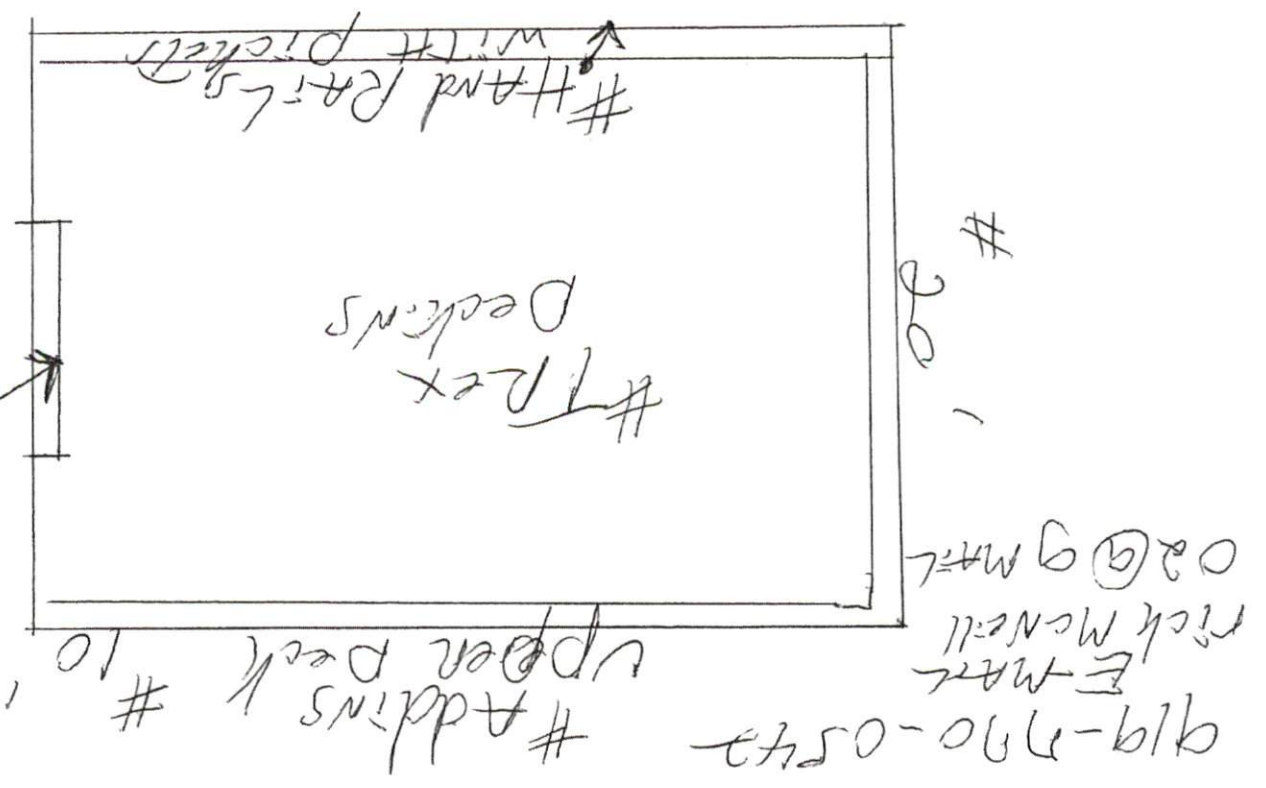 919-770-0542
E-MAIL
rick McNeill
02@gMAIL
#Adding
upper Deck
# 10'
# 20'
#TRex
Decking
#HAnd RAiLs
with pickets